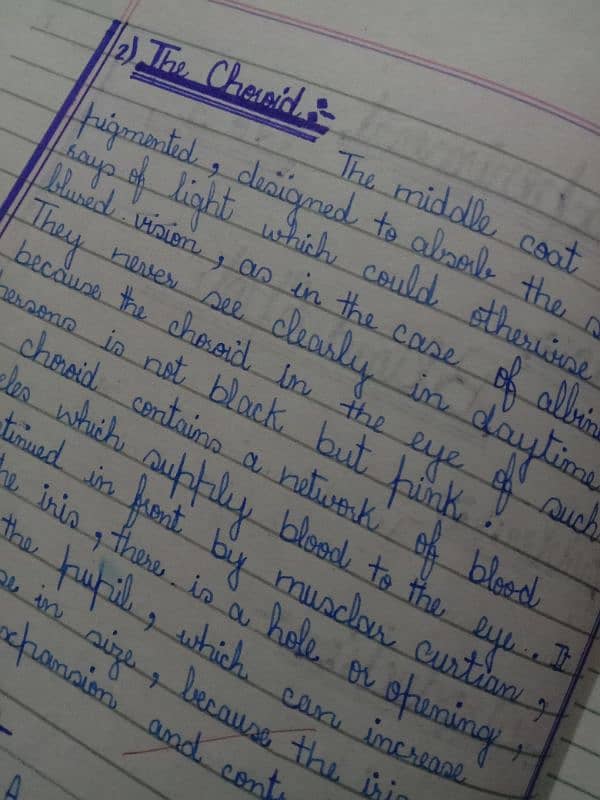 2) The Choroid :-
The middle coat
pigmented, designed to absorb the s
rays of light which could otherwise
blured vision, as in the case of albin
They never see clearly in daytime
because the choroid in the eye of such
persons is not black but pink.
choroid contains a network of blood
els which supply blood to the eye. It
tinued in front by musclar curtian,
he iris, there is a hole or opening,
the pupil, which can increase
se in size, because the iris
xpansion and cont
A